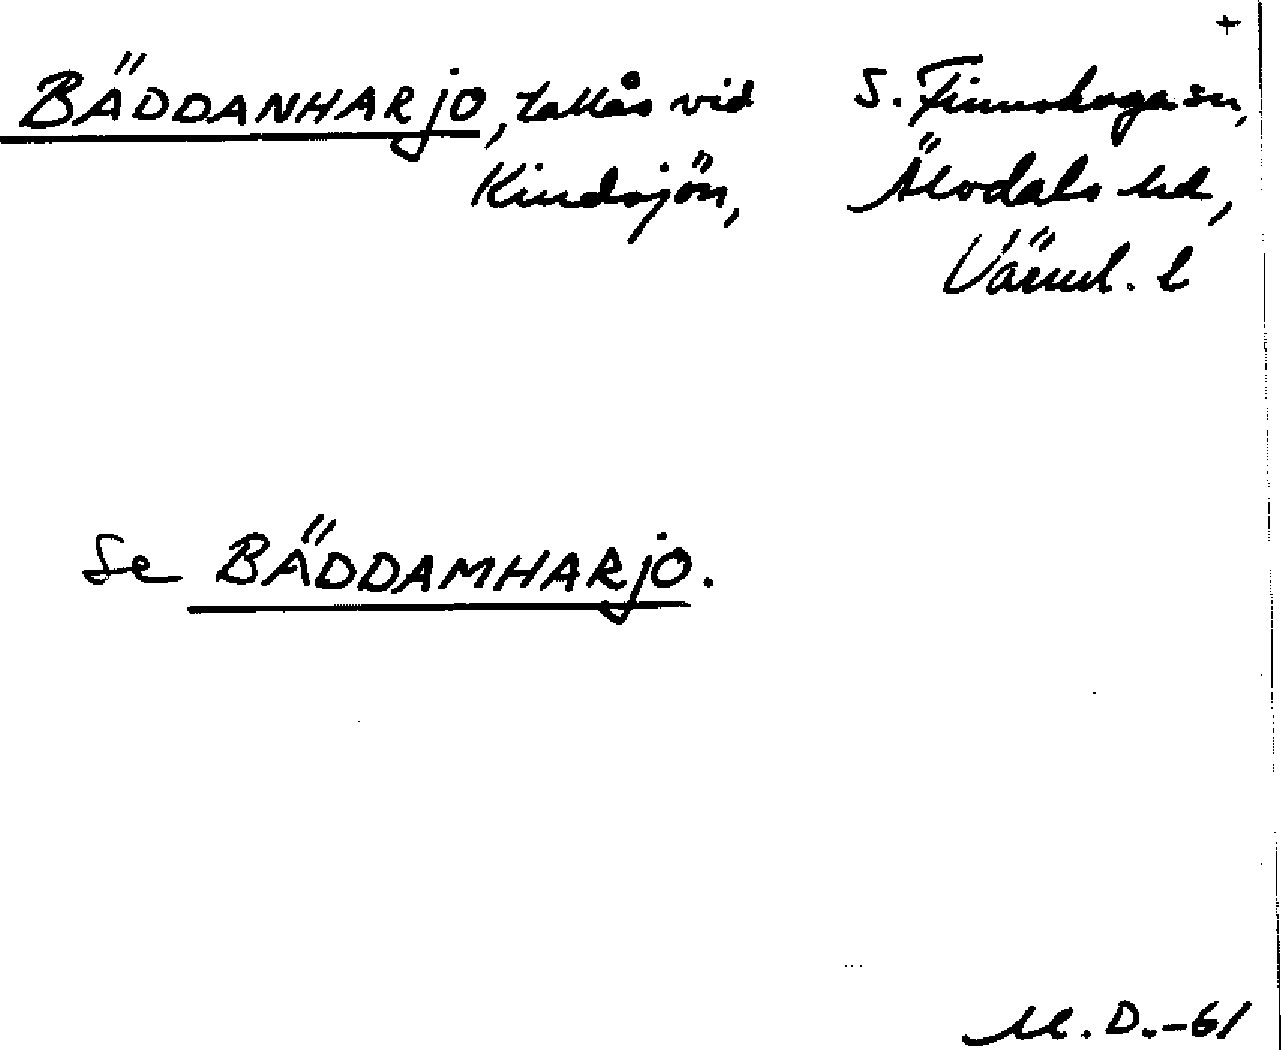 +
BÄDDANHARjO, tallås vid S. Finnskoga sn,
Kindsjön, Älvdals hd,
Värml. l
Se BÄDDAMHARjO.
M. D. -61